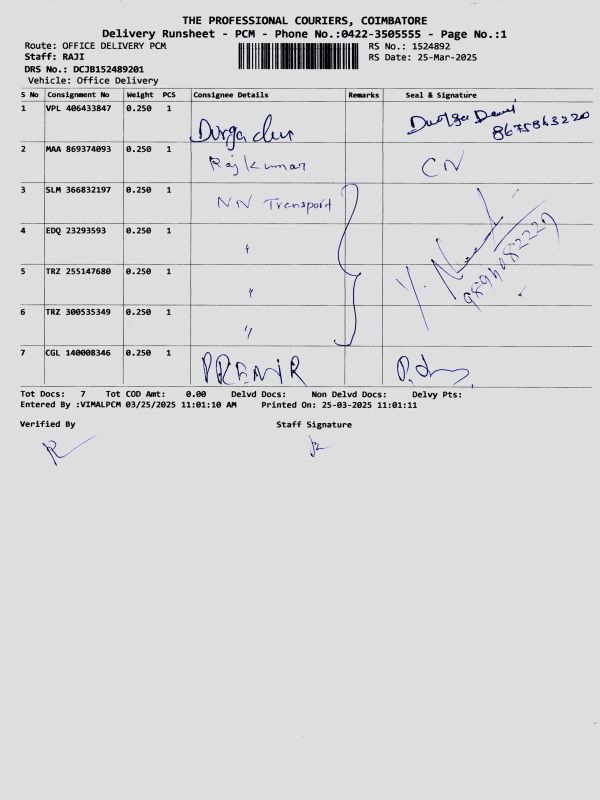 THE PROFESSIONAL COURIERS, COIMBATORE
Delivery Runsheet - PCM - Phone No.:0422-3505555 - Page No.:1
Route: OFFICE DELIVERY PCM RS No.: 1524892
Staff: RAJI RS Date: 25-Mar-2025
DRS No.: DCJB152489201
Vehicle: Office Delivery
S No Consignment No Weight PCS Consignee Details Remarks Seal & Signature
1 VPL 406433847 0.250 1 Durga devi Durga Devi
8675863220
2 MAA 869374093 0.250 1 Rajkumar CN
3 SLM 366832197 0.250 1 NN Transport
4 EDQ 23293593 0.250 1 "
5 TRZ 255147680 0.250 1 "
6 TRZ 300535349 0.250 1 "
7 CGL 140008346 0.250 1
Tot Docs: 7 Tot COD Amt: 0.00 Delvd Docs: Non Delvd Docs: Delvy Pts:
Entered By :VIMALPCM 03/25/2025 11:01:10 AM Printed On: 25-03-2025 11:01:11
Verified By Staff Signature